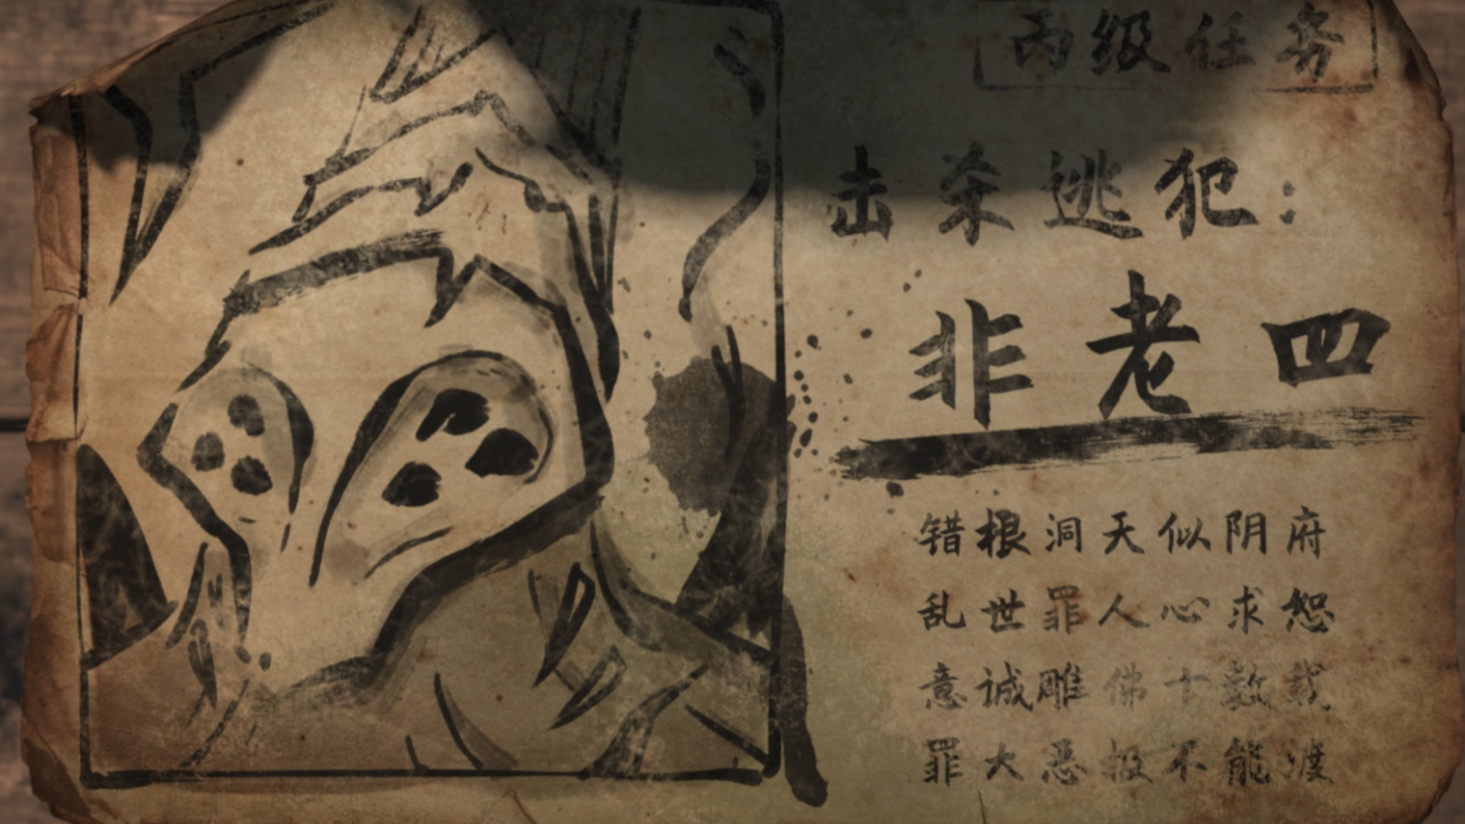 丙级任务
击杀逃犯：
非老四
错根洞天似阴府
乱世罪人心求恕
意诚雕佛十数载
罪大恶极不能渡